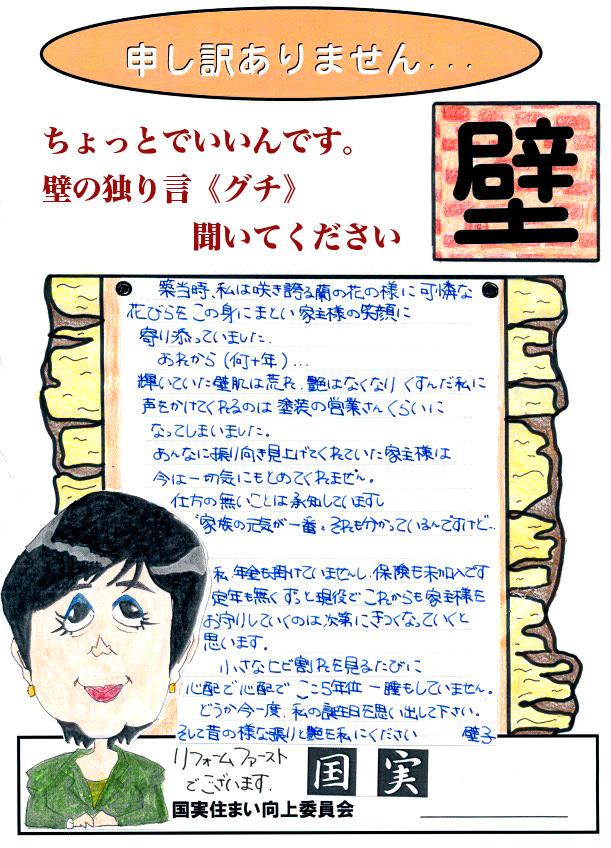 申し訳ありません...
ちょっとでいいんです。
壁の独り言《グチ》
聞いてください
壁
築当時、私は咲き誇る蘭の花の様に可憐な
花びらをこの身にまとい家主様の笑顔に
寄り添っていました。
あれから(何十年)...
輝いていた壁肌は荒れ、艶はなくなりくすんだ私に
声をかけてくれるのは塗装の営業さんくらいに
なってしまいました。
あんなに振り向き見上げてくれていた家主様は
今は一切気にもとめてくれません。
仕方の無いことは承知していますし
"家族の元気が一番"それも分かっているんですけど...
私、年金も掛けていませんし、保険も未加入です
定年も無くずっと現役でこれからも家主様を
お守りしていくのは次第にきつくなっていくと
思います。
小さなヒビ割れを見るたびに
心配で心配でここ5年位一睡もしていません。
どうか今一度、私の誕生日を思い出して下さい。
そして昔の様な張りと艶を私にください 壁子
リフォームファースト
でございます。
国 実
国実住まい向上委員会